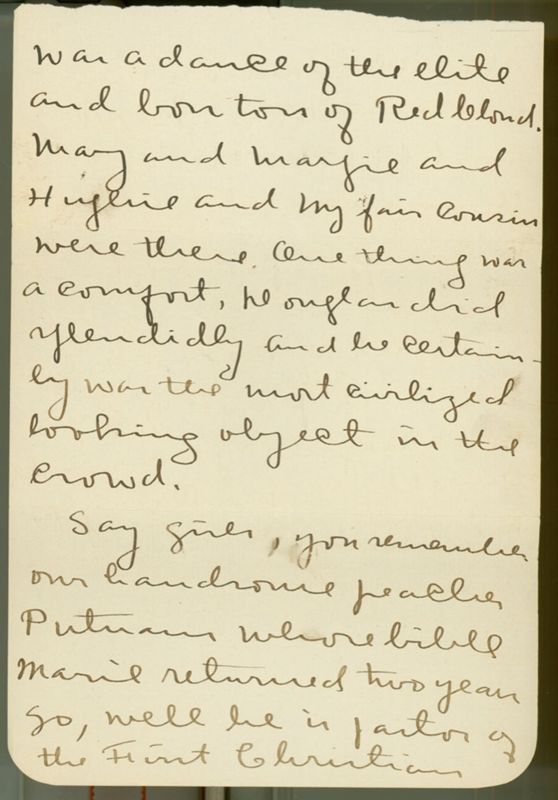 was a dance of the elite
and bon ton of Red Cloud.
Mary and Margie and
Hughie and my fair cousin
were there. One thing was
a comfort, Douglas did
splendidly and he certain-
ly was the most civilized
looking object in the
crowd.
Say girls, you remember
our handsome preacher
Putnam whose bible
Marie returned two years
go, well he is pastor of
the First Christian